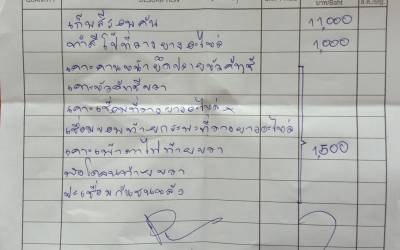 QUANTITY DESCRIPTION บาท/Baht ส.ต./Stg.
เก็บสีรอบคัน 11,000
ทำสีโป๊ที่วางยางอะไหล่ 1,000
เคาะคานหน้า ยึดปลายหัวคัทซี
เคาะหัวคัทซีขวา
เคาะเชื่อมที่วางยางอะไหล่
เชื่อมขอบท้ายกระบะที่วางยางอะไหล่
เคาะเบ้าตาไฟท้ายขวา 1,500
ท้ายขวา
ปะเชื่อมกันชนหลัง